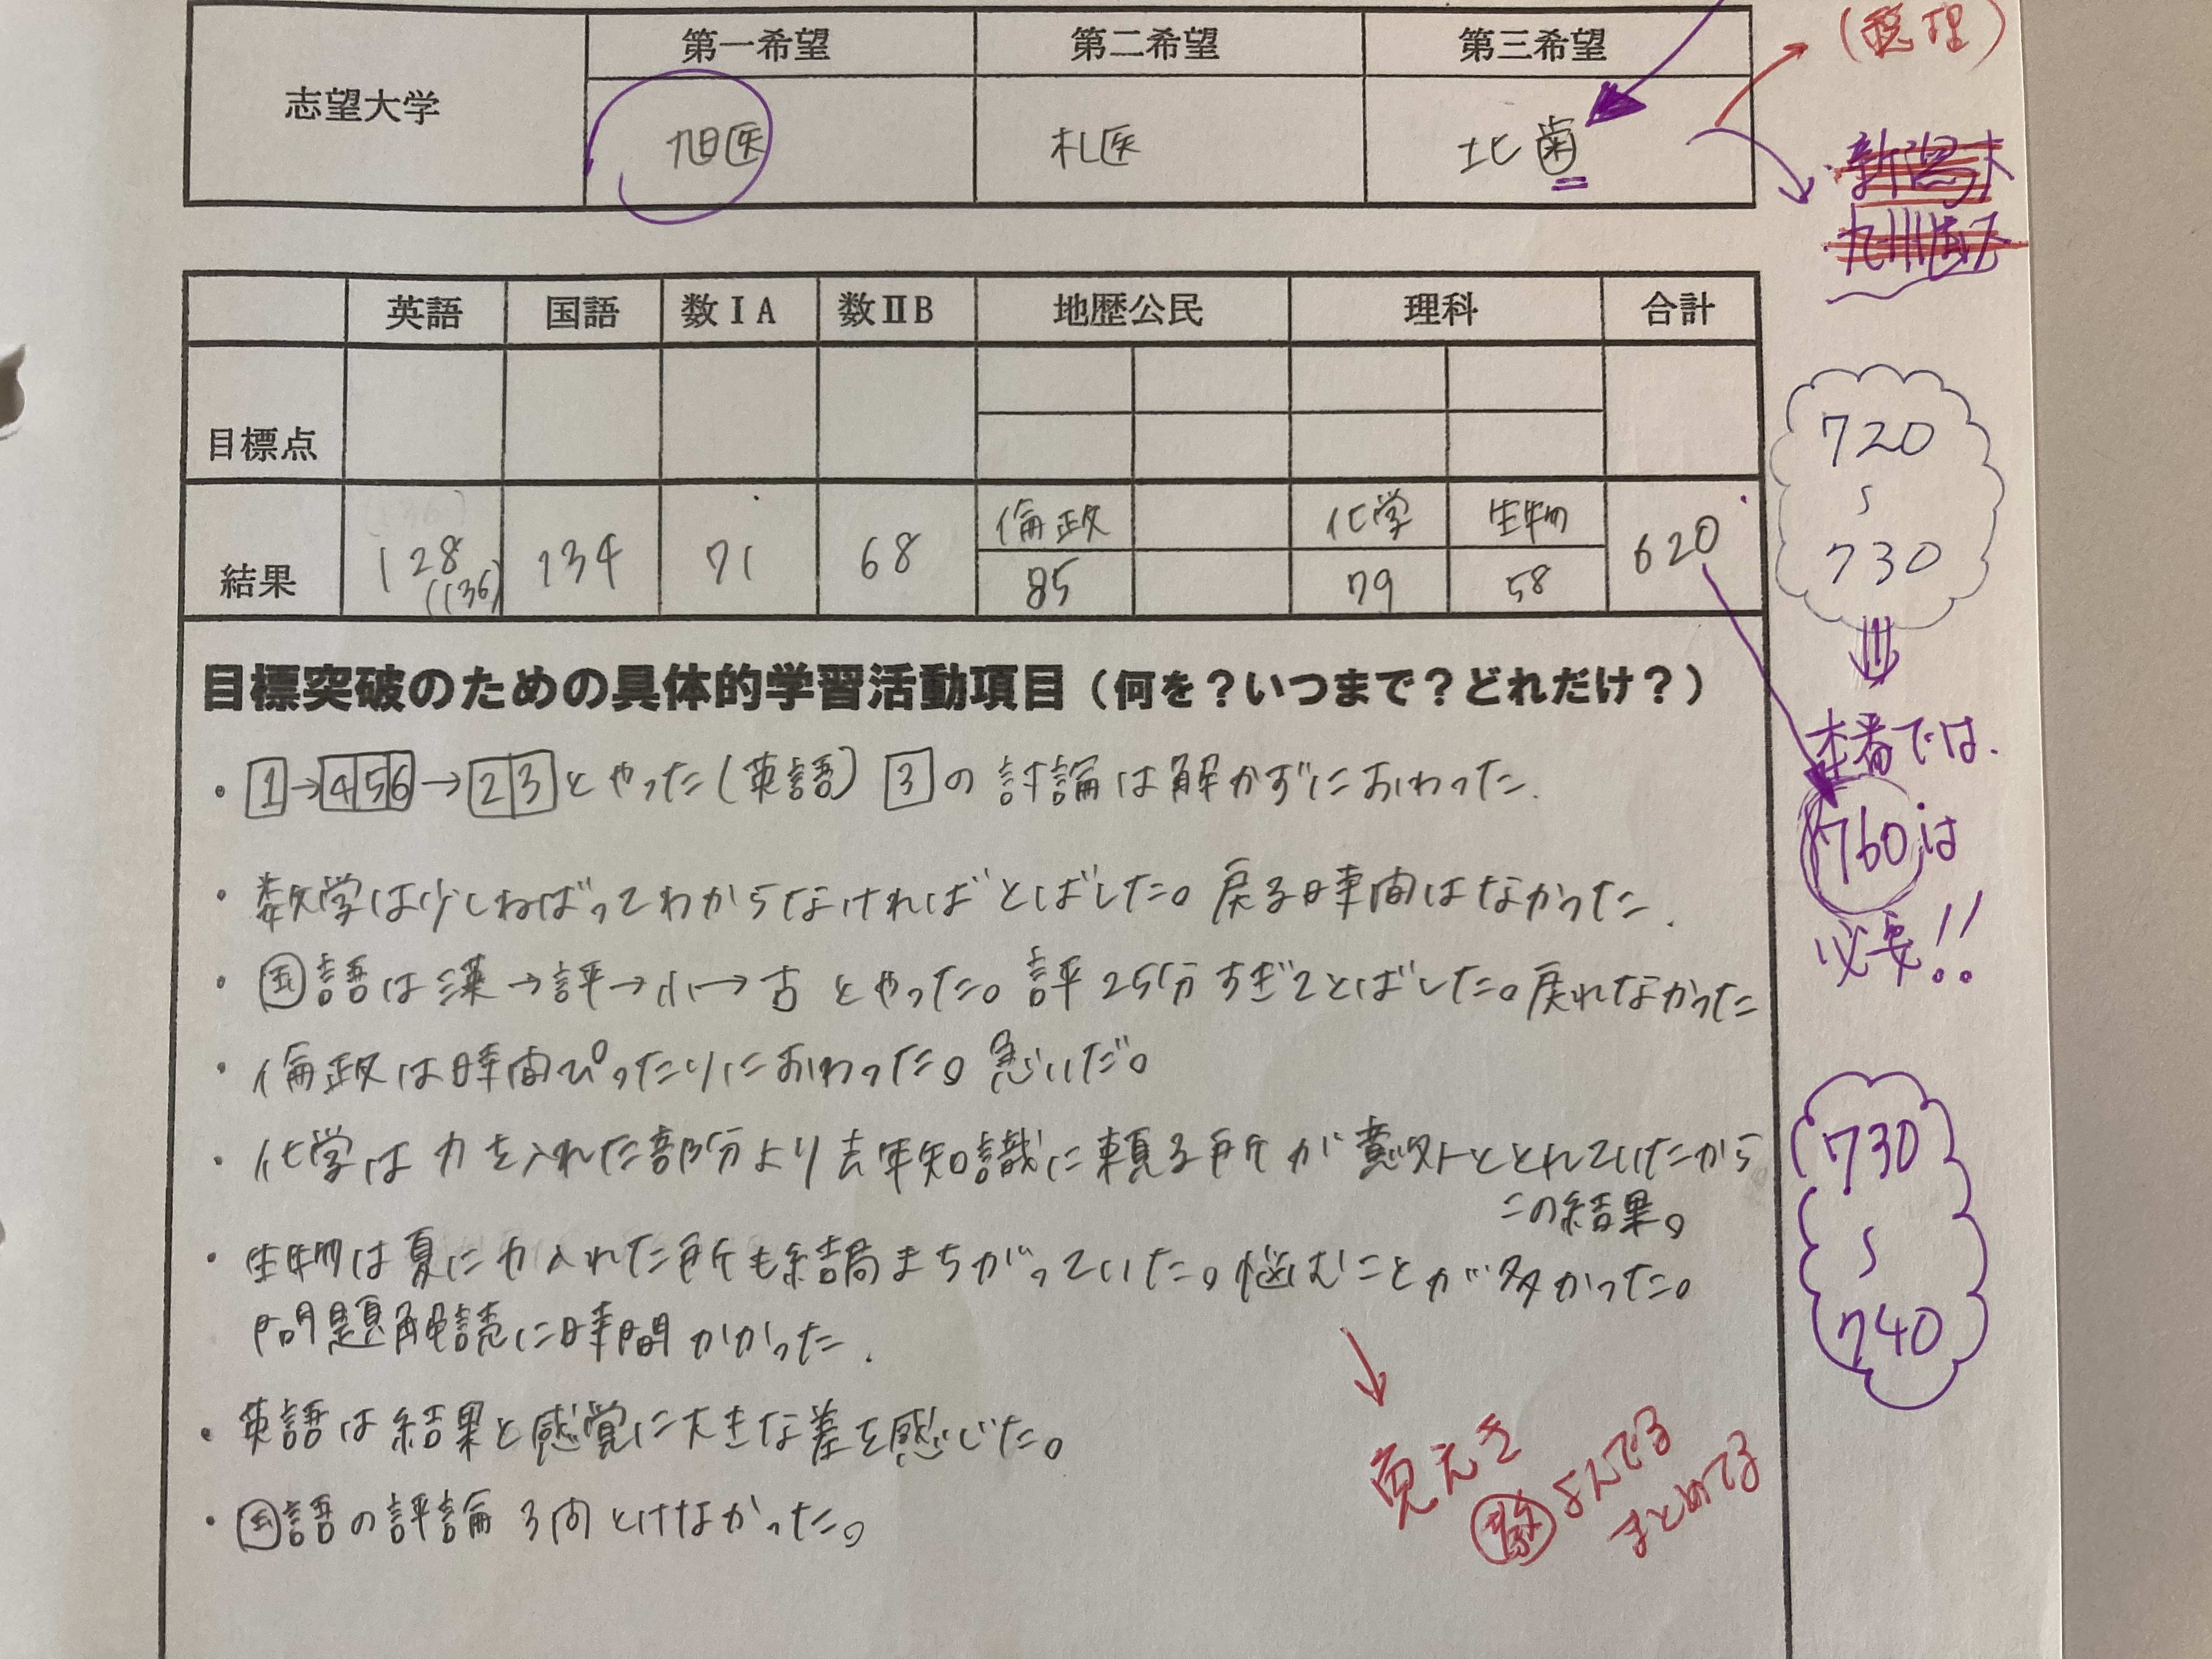 第一希望 第二希望 第三希望
志望大学 旭医 札医 北歯
新潟大
九州
英語 国語 数ⅠA 数ⅡB 地歴公民 理科 合計
目標点
倫政 化学 生物
結果 128 (136) 134 71 68 85 79 58 620
720
〜
730
本番では、
760は
必要!!
730
〜
740
目標突破のための具体的学習活動項目（何を？いつまで？どれだけ？）
・1→456→23とやった(英語) 3の討論は解かずにおわった.
・数学は少しねばってわからなければとばした。戻る時間はなかった.
・国語は漢→評→小→古とやった。評25分すぎてとばした。戻れなかった
・倫政は時間ぴったりにおわった。急いだ。
・化学は力を入れた部分より去年知識に頼る所が意外ととれていたから
この結果。
・生物は夏に力入れた所も結局まちがっていた。悩むことが多かった。
問題解読に時間かかった.
・英語は結果と感覚に大きな差を感じた。
・国語の評論3問とけなかった。
よんでる
まとめてる